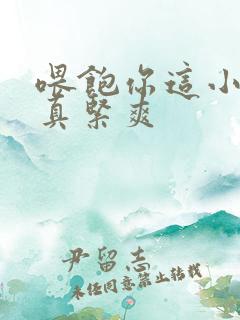 喂飽你這小
真緊爽
尹留志
未经同意禁止转载